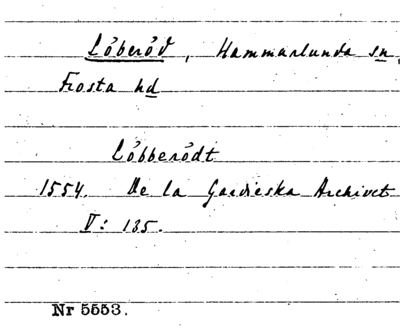 Löberöd, Hammarlunda sn,
Frosta hd
Löbberödt
1554. De la Gardieska Archivet
V: 135.
Nr 5553.